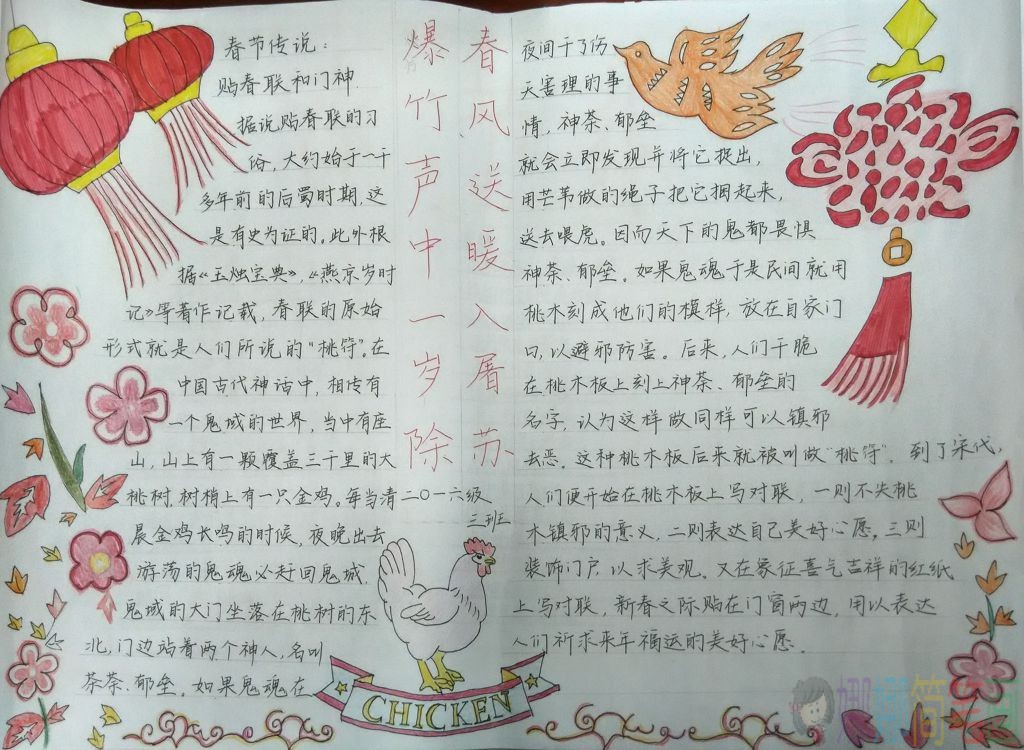 春节传说：
贴春联和门神
据说贴春联的习
俗，大约始于一千
多年前的后蜀时期，这
是有史为证的。此外根
据《玉烛宝典》，《燕京岁时
记》等著作记载，春联的原始
形式就是人们所说的“桃符”。在
中国古代神话中，相传有
一个鬼域的世界，当中有座
山，山上有一颗覆盖三千里的大
桃树，树梢上有一只金鸡。每当清
晨金鸡长鸣的时候，夜晚出去
游荡的鬼魂必赶回鬼域，
鬼域的大门坐落在桃树的东
北，门边站着两个神人，名叫
荼荼、郁垒。如果鬼魂在
爆竹声中一岁除
春风送暖入屠苏
二〇一六级
三班
夜间干了伤
天害理的事
情，神荼、郁垒
就会立即发现并将它捉出，
用芒苇做的绳子把它捆起来，
送去喂虎。因而天下的鬼都畏惧
神荼、郁垒。如果鬼魂于是民间就用
桃木刻成他们的模样，放在自家门
口，以避邪防害。后来，人们干脆
在桃木板上刻上神荼、郁垒的
名字，认为这样做同样可以镇邪
去恶。这种桃木板后来就被叫做“桃符”。到了宋代，
人们便开始在桃木板上写对联，一则不失桃
木镇邪的意义，二则表达自己美好心愿。三则
装饰门户，以求美观。又在象征喜气吉祥的红纸
上写对联，新春之际贴在门窗两边，用以表达
人们祈求来年福运的美好心愿。
CHICKEN